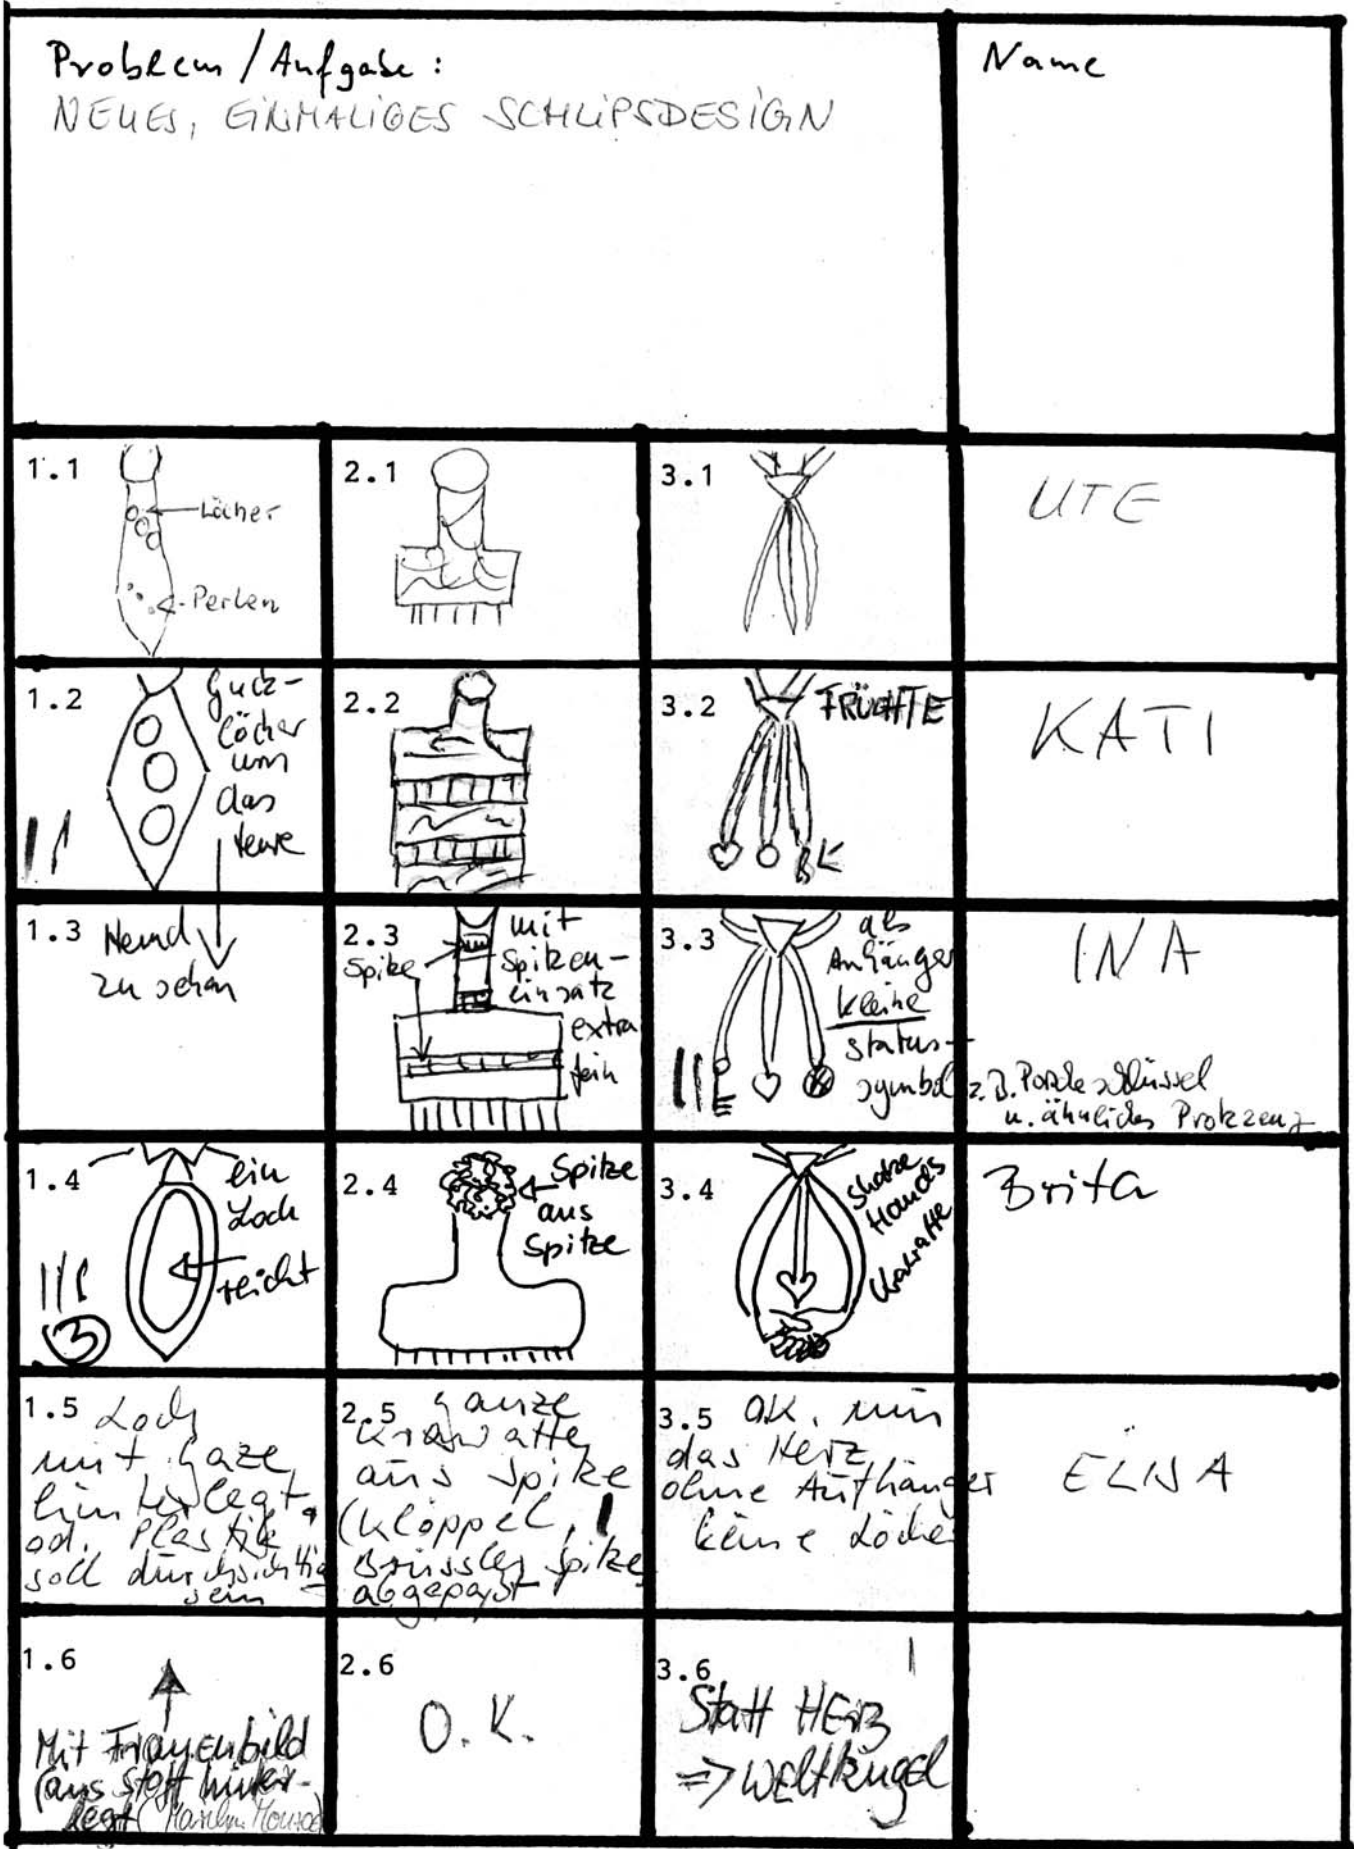 Problem / Aufgabe :
NEUES, EINMALIGES SCHLIPSDESIGN
Name
1.1
Löcher
Perlen
2.1
3.1
UTE
1.2
Guck-
löcher
um
das
2.2
3.2
FRÜCHTE
KATI
1.3
Hemd
zu sehen
2.3
Spitze
mit
Spitzen-
einsatz
extra
fein
3.3
als
Anhänger
kleine
status-
symbole z.B. Porscheschlüssel
u. ähnliches Protzzeug
INA
1.4
ein
Loch
reicht
3
2.4
Spitze
aus
Spitze
3.4
Shake
Hands
Krawatte
Brita
1.5 Loch
mit Gaze
hinterlegt
od. Plastik
soll durchsichtig
sein
2.5 ganze
Krawatte
aus Spitze
(Klöppel,
Brüssler Spitze
abgepasst
3.5 OK. nur
das Herz
ohne Aufhänger
keine Löcher
ELISA
1.6
Mit Frauenbild
(aus Stoff hinter-
legt (Marilyn Monroe)
2.6
O.K.
3.6
Statt HERZ
=> Weltkugel